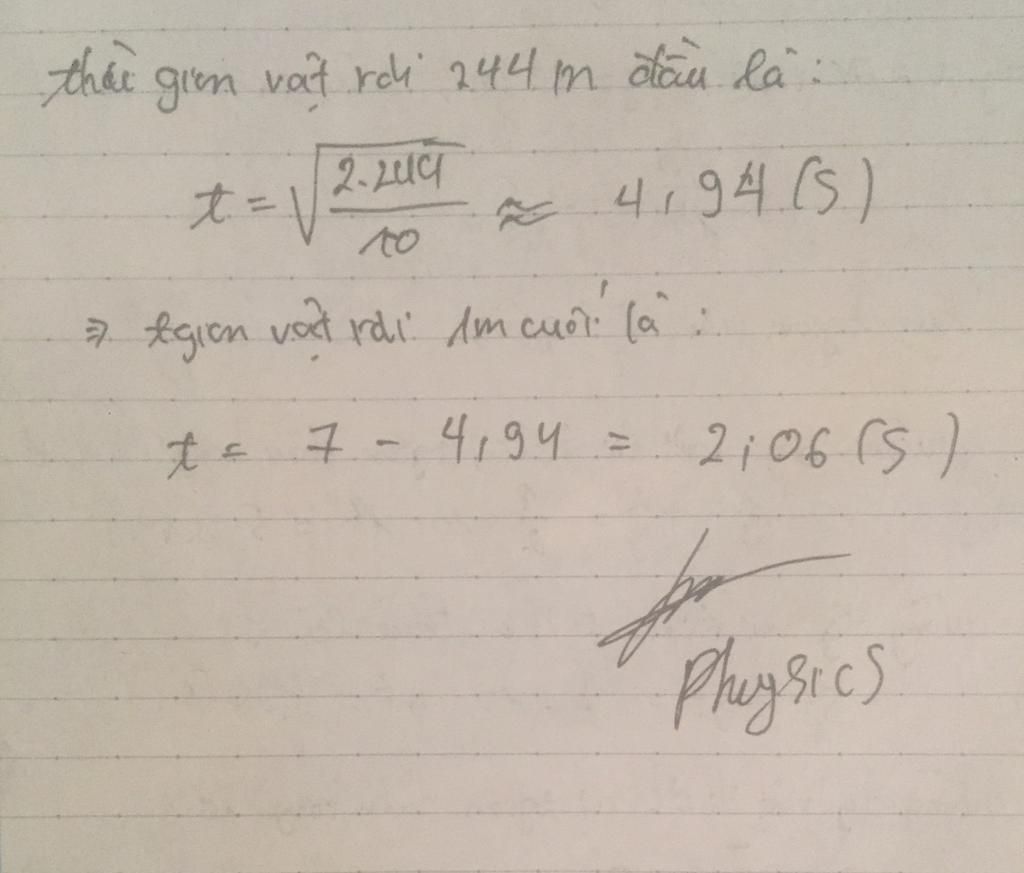 thời gian vật rơi 244 m đầu là :
t = √(2.244/10) ≈ 4,94 (s)
⇒ tgian vật rơi 1m cuối là :
t = 7 - 4,94 = 2,06 (s)
Physics